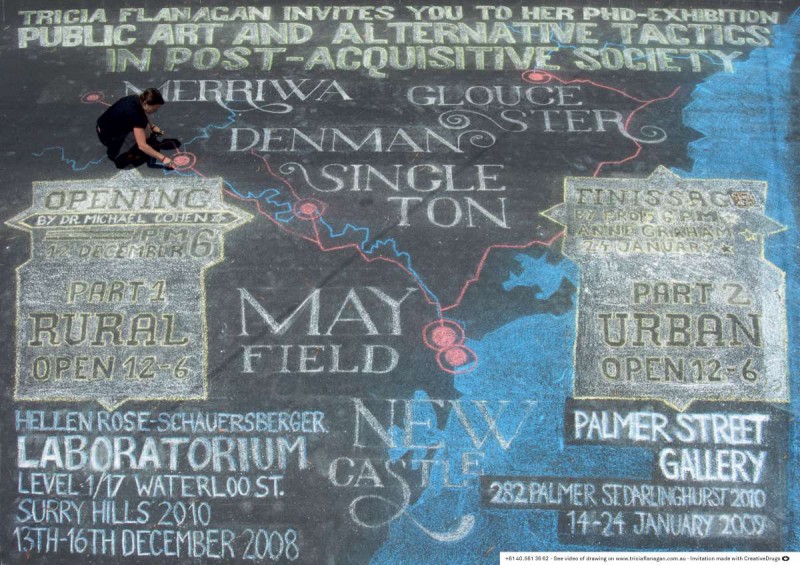 TRICIA FLANAGAN INVITES YOU TO HER PHD-EXHIBITION
PUBLIC ART AND ALTERNATIVE TACTICS
IN POST-ACQUISITIVE SOCIETY
MERRIWA
GLOUCE
STER
DENMAN
SINGLE
TON
OPENING
BY DR. MICHAEL COHEN
PM
12 DECEMBER 6
PART 1
RURAL
OPEN 12-6
FINISSAGE
ANNE GRAHAM
24 JANUARY
PART 2
URBAN
OPEN 12-6
MAY
FIELD
NEW
CASTLE
HELLEN ROSE-SCHAUERSBERGER
LABORATORIUM
LEVEL 1/17 WATERLOO ST.
SURRY HILLS 2010
13TH-16TH DECEMBER 2008
PALMER STREET
GALLERY
282 PALMER ST DARLINGHURST 2010
14-24 JANUARY 2009
+61 40 381 36 62 - See video of drawing on www.triciaflanagan.com.au - Invitation made with CreativeDrugs